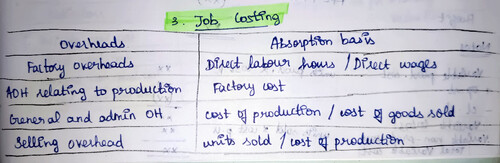 3. Job Costing
Overheads Absorption basis
Factory overheads Direct labour hours / Direct wages
AOH relating to production Factory cost
General and admin OH cost of production / cost of goods sold
Selling overhead units sold / cost of production